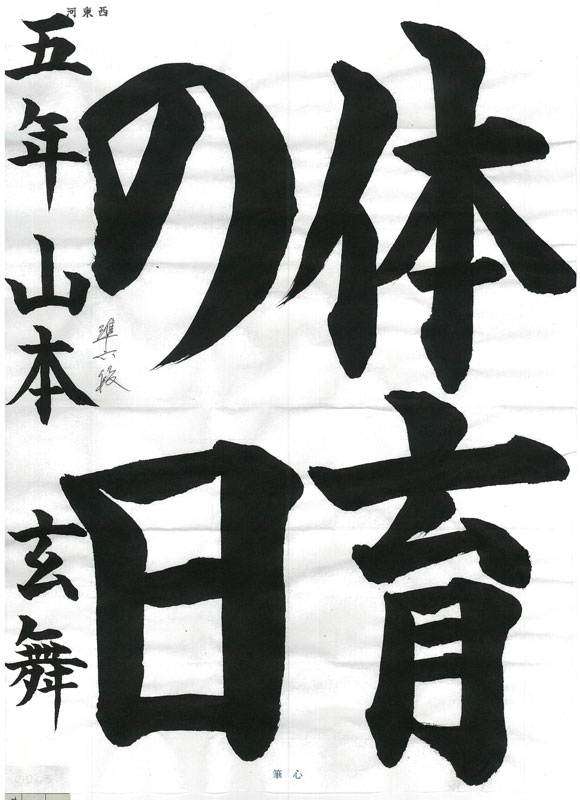 体育
の日
五年 山本 玄舞
準六段
河東西
筆心